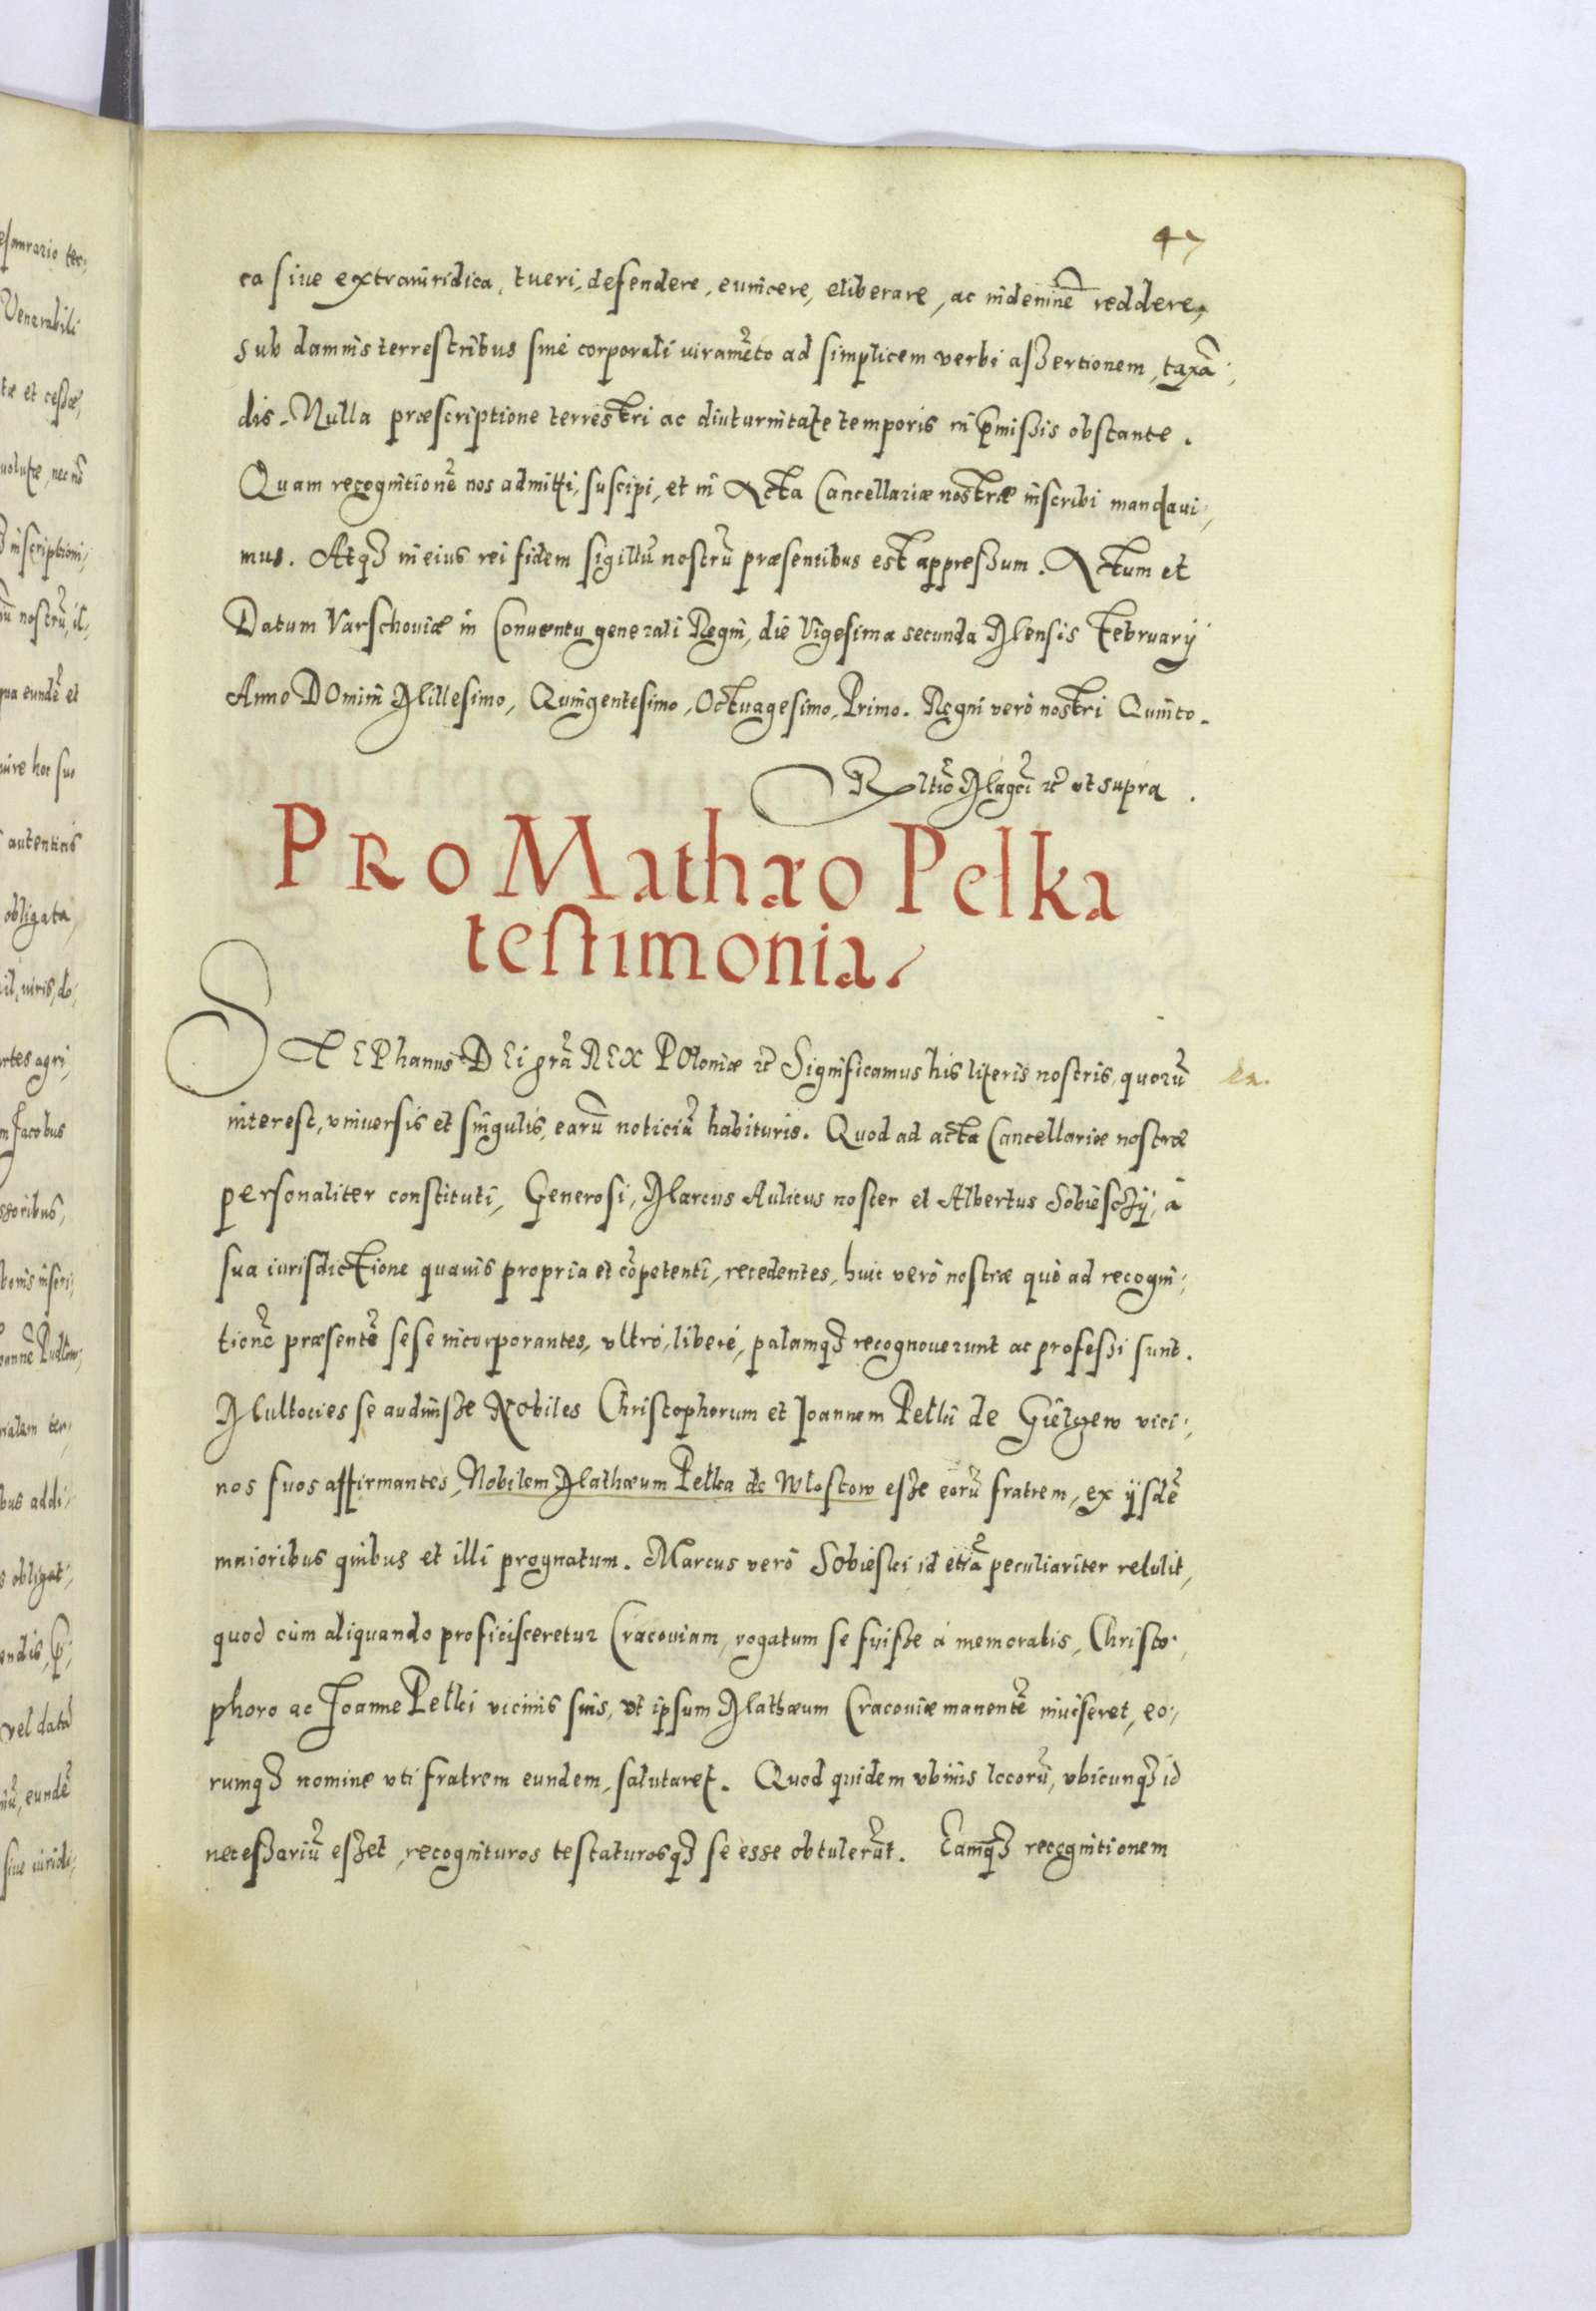 47
ca siue extraiuridica, tueri, defendere, euincere, eliberare, ac indemnē reddere,
Sub damnis terrestribus sine corporali iuramēto ad simplicem verbi assertionem, taxā,
dis. Nulla præscriptione terrestri ac diuturnitate temporis in p̄missis obstante.
Quam recognitionē nos admitti, suscipi, et in Acta Cancellariæ nostræ inscribi mandaui,
mus. Atqȝ in eius rei fidem sigillū nostrū præsentibus est appressum. Actum et
Datum Varschouiæ in Conuentu generali Regni, die Vigesima secunda Mensis February
Anno DOmini Millesimo, Quingentesimo, Octuagesimo, Primo. Regni verò nostri Quinto.
Rltiō Magci &c ut supra.
PRO Mathæo Pelka
testimonia.
STEPhanus DEi grā REX POloniæ &c Significamus his literis nostris, quorū
interest, vniuersis et singulis, earū noticiā habituris. Quod ad acta Cancellariæ nostræ
personaliter constituti, Generosi, Marcus Aulicus noster et Albertus Sobiesczÿ, à
sua iurisdictione quauis propria et cōpetenti, recedentes, huic verò nostræ quò ad recogni,
tionē præsentē sese incorporantes, vltrò, liberè, palamqȝ recognouerunt ac professi sunt.
Multocies se audiuisse Nobiles Christophorum et Joannem Pelki de Gielzew vici,
nos suos affirmantes, Nobilem Mathæum Pelka de Wlostow esse eorū fratrem, ex ÿsdē
maioribus quibus et illi prognatum. Marcus verò Sobieski id etiā peculiariter retulit,
quod cùm aliquando proficisceretur Cracouiam, rogatum se fuisse à memoratis, Christo,
phoro ac Joanne Pelki vicinis suis, vt ipsum Mathæum Cracouiæ manentē inuiseret, eo,
rumqȝ nomine vti fratrem eundem, salutaret. Quod quidem vbiuis locorū, vbicunqȝ id
necessariū esset, recognituros testaturosqȝ se esse obtulerūt. Eamqȝ recognitionem